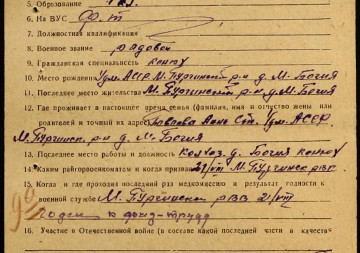 5. Образование
6. На ВУС
7. Должностная квалификация
8. Военное звание рядовой
9. Гражданская специальность конюх
10. Место рождения Удм. АССР М. Пургинский р-н д. М-Богия
11. Последнее место жительства М. Пургинский р-н д. М-Богия
12. Где проживает в настоящее время семья (фамилия, имя и отчество жены или
родителей и точный их адрес) Анна Ст. Удм. АССР.
М. Пургинск. р-н д. М-Богия
13. Последнее место работы и должность колхоз д. Богия конюх
14. Каким райгорвоенкоматом и когда призван М. Пургинск РВК
15. Когда и где проходил последний раз медкомиссию и результат годности к
военной службе М. Пургинский РВК 21/VIII
годен к физ-труду
16. Участие в Отечественной войне (в составе какой последней части и качестве